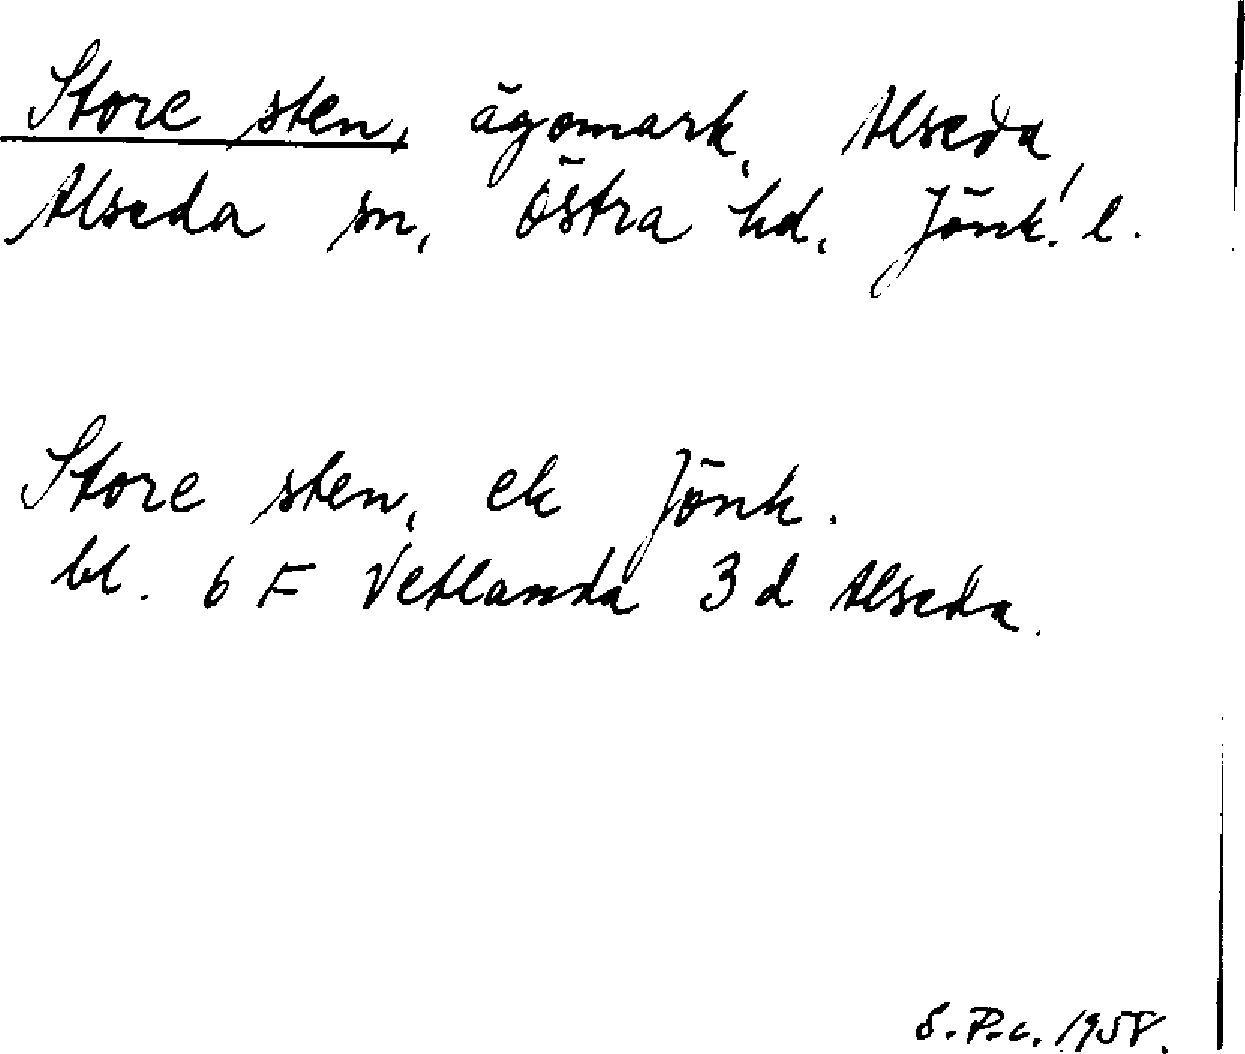 Store sten, ägomark, Alseda,
Alseda sn, Östra hd, Jönk. l.
Store sten, ek Jönk.
bl. 6 F Vetlanda 3 d Alseda.
S.P.c. 1958.